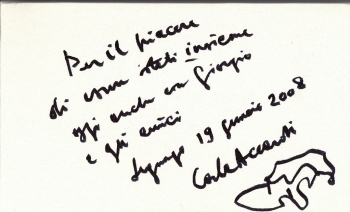 Per il piacere
di essere stati insieme
oggi anche con Giorgio
e gli amici
19 gennaio 2008
Carla Accardi